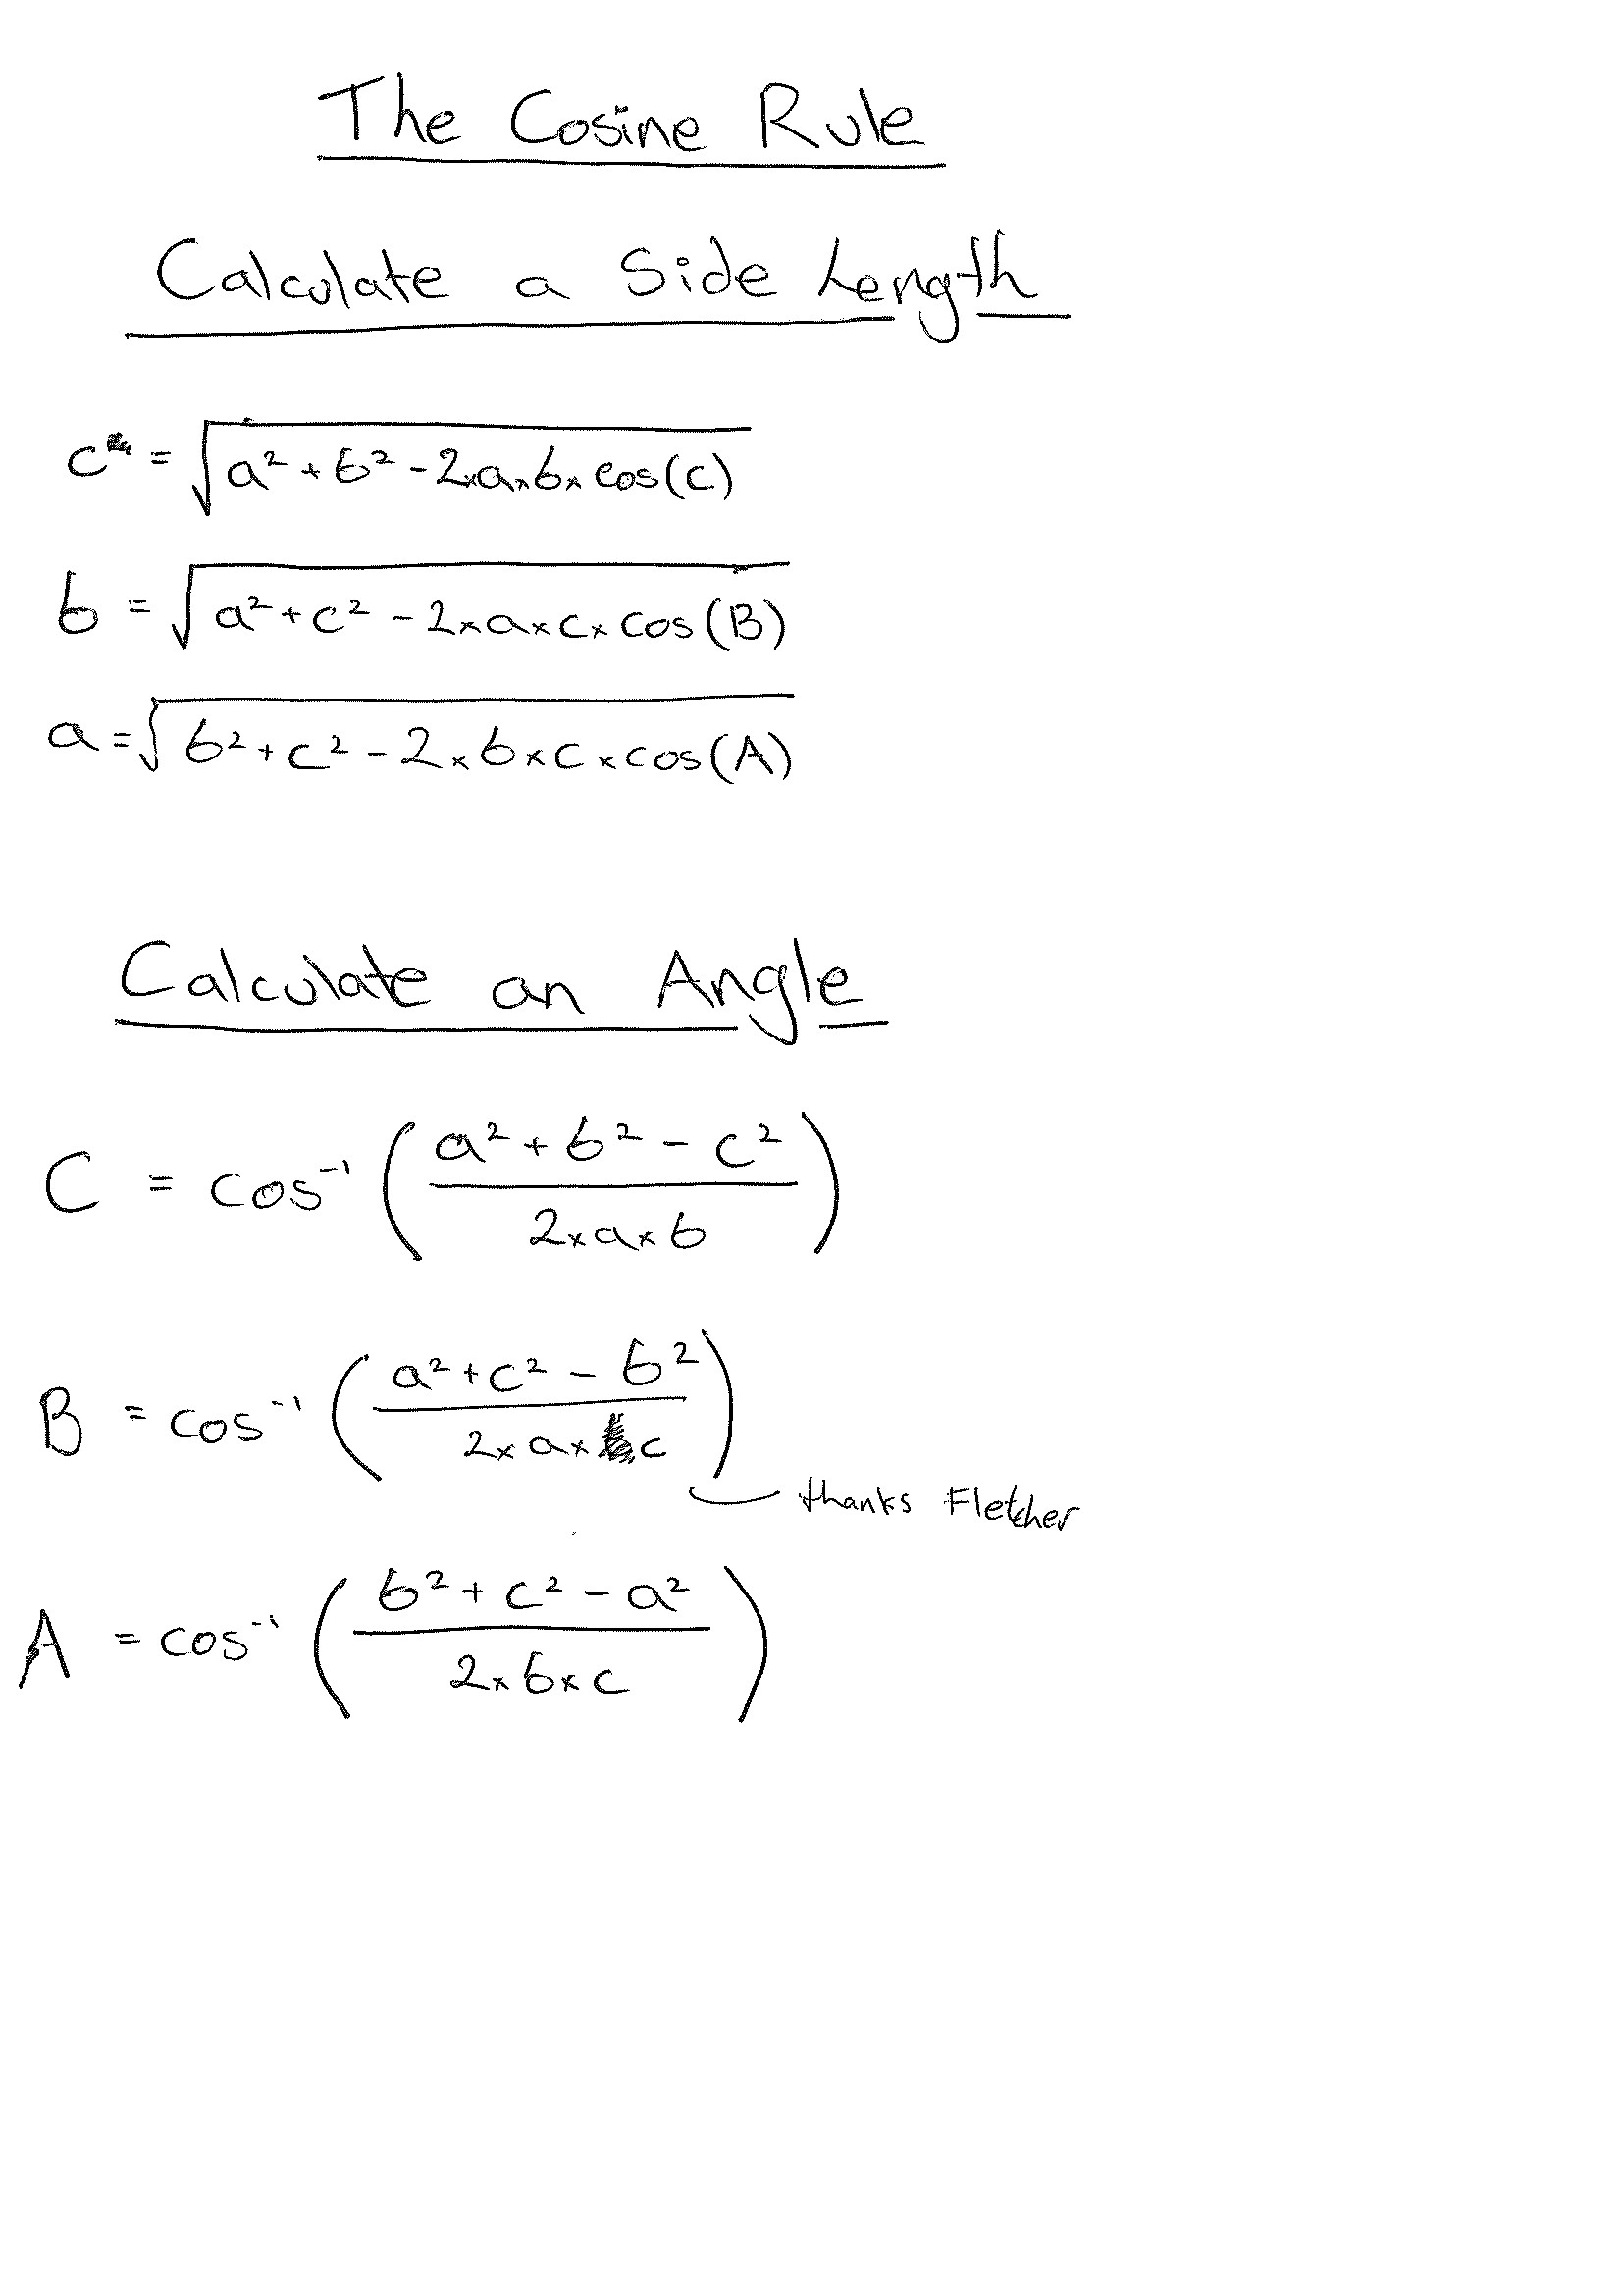 The Cosine Rule
Calculate a Side Length
c = √(a² + b² - 2×a×b×cos(C))
b = √(a² + c² - 2×a×c×cos(B))
a = √(b² + c² - 2×b×c×cos(A))
Calculate an Angle
C = cos⁻¹ ((a² + b² - c²)/(2×a×b))
B = cos⁻¹ ((a² + c² - b²)/(2×a×c))
thanks Fletcher
A = cos⁻¹ ((b² + c² - a²)/(2×b×c))